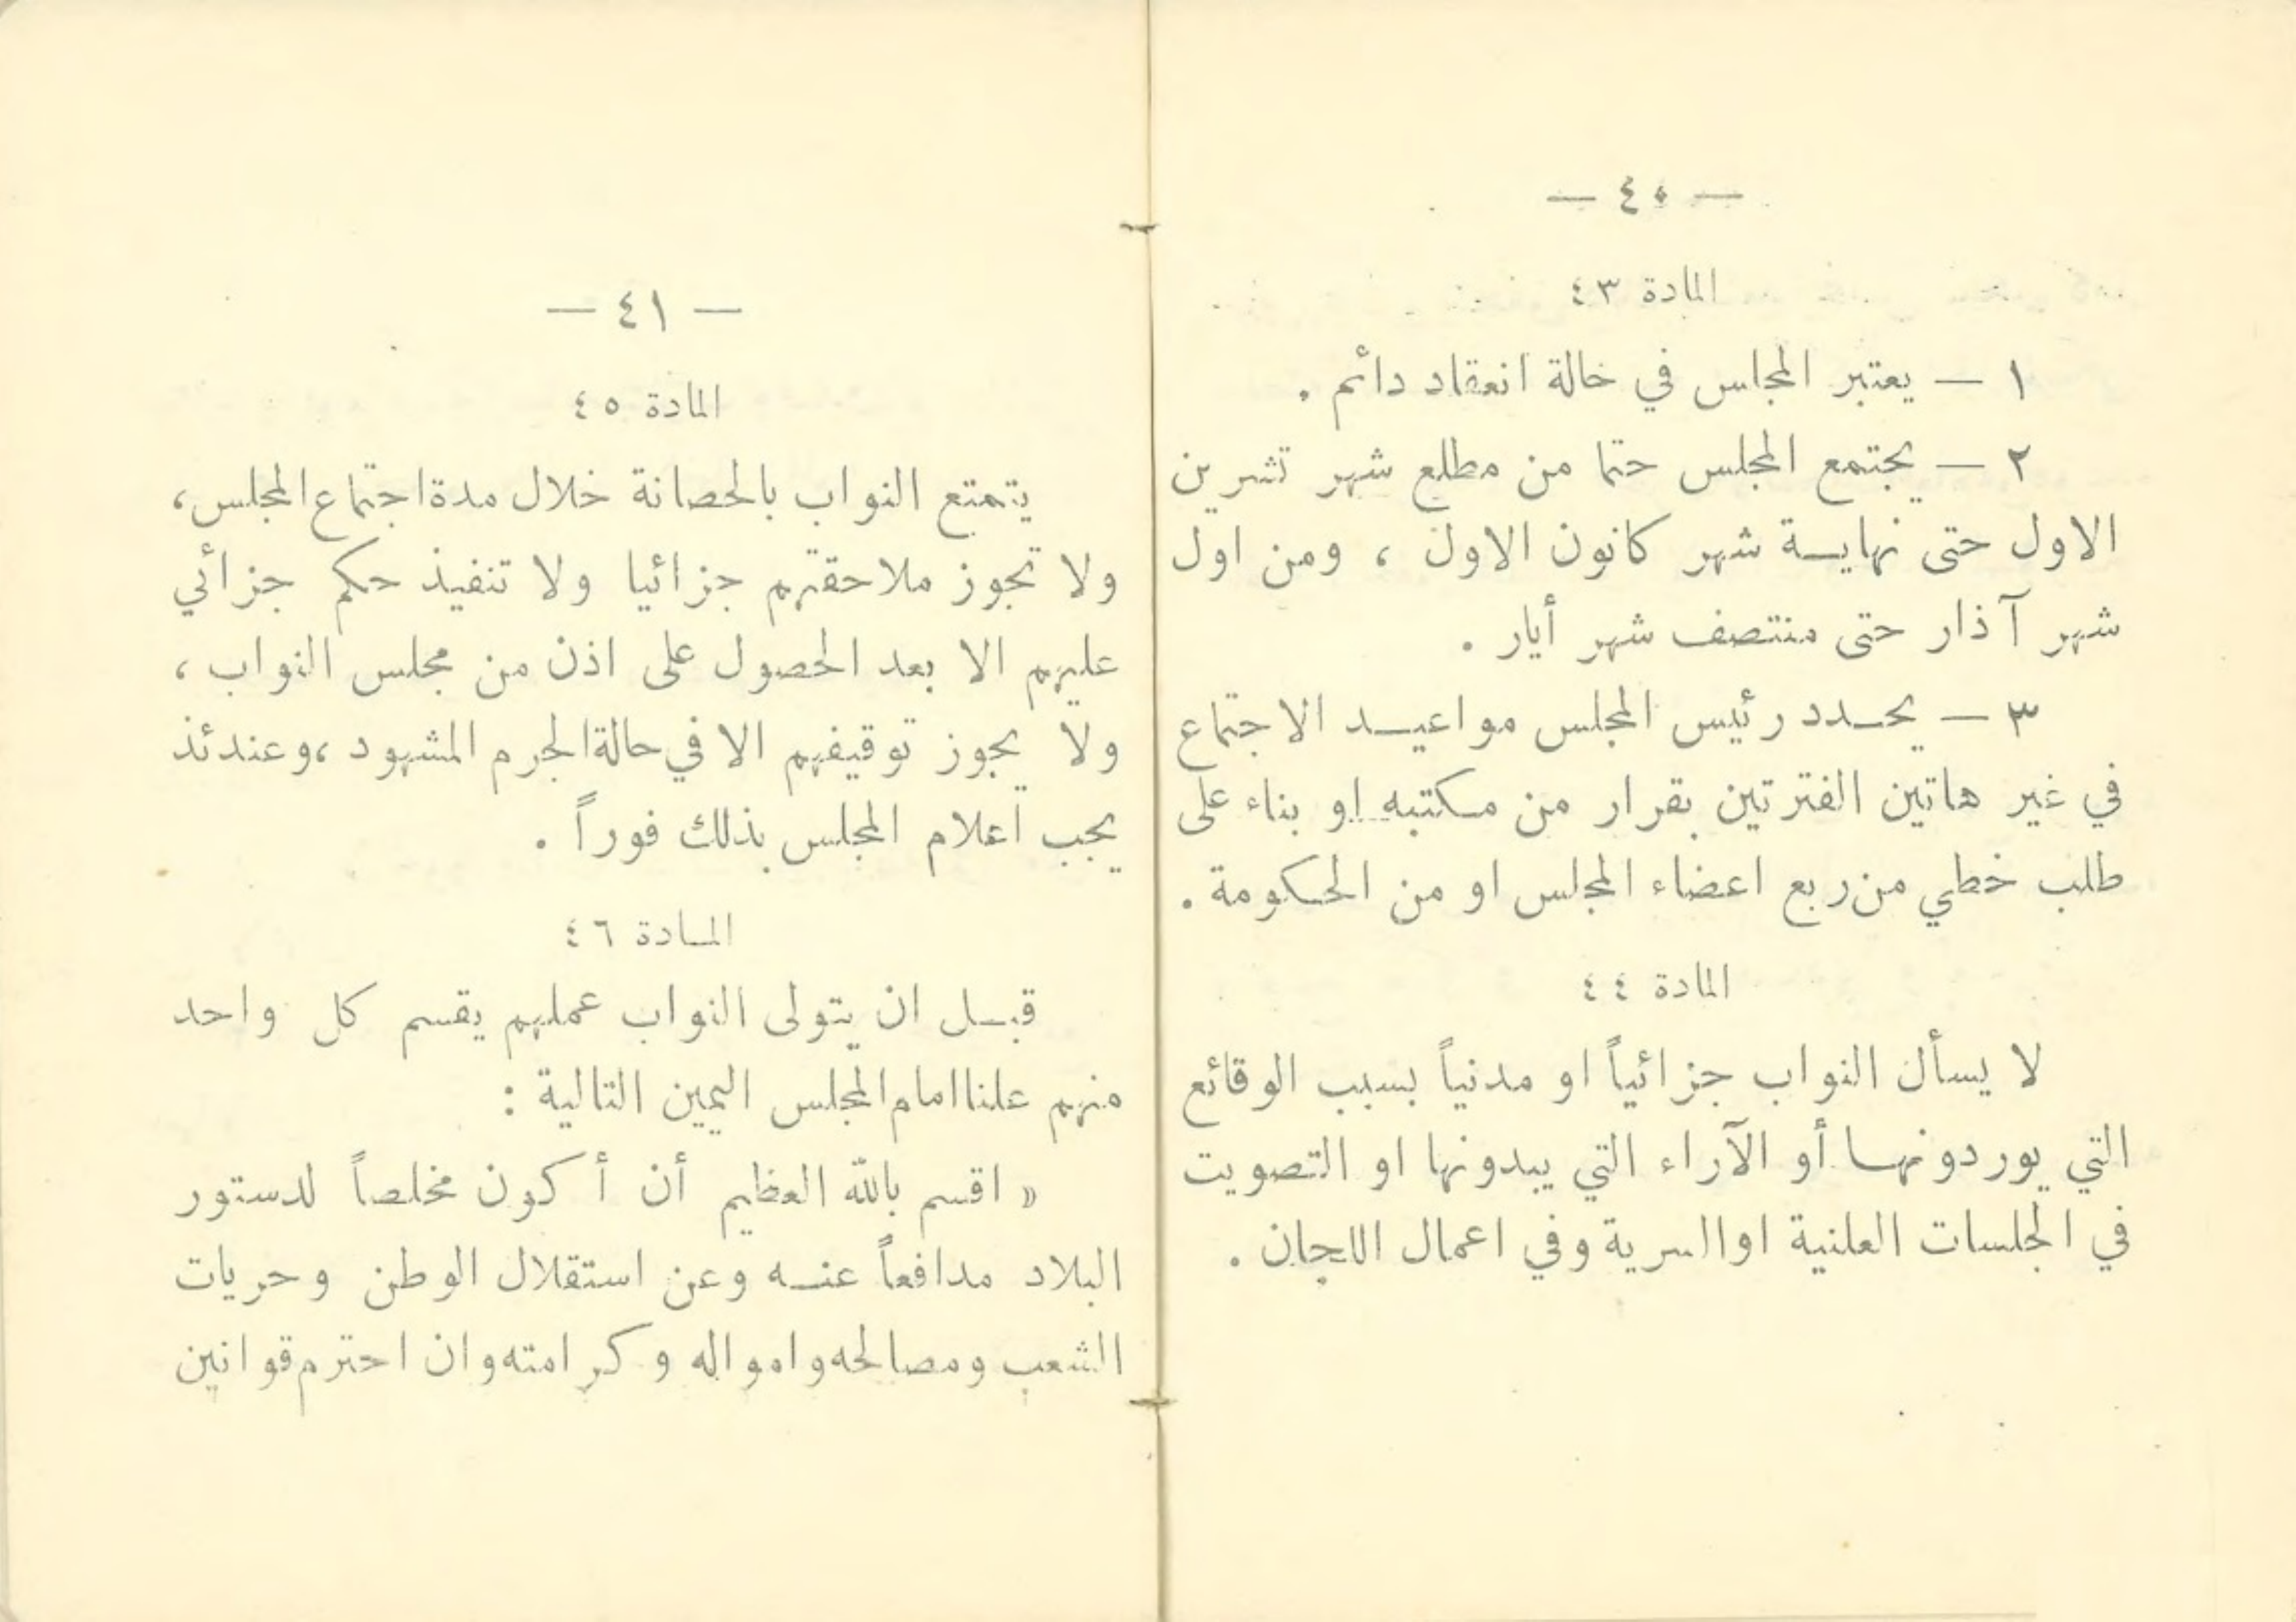 — ٤٠ —
المادة ٤٣
١ — يعتبر المجلس في حالة انعقاد دائم .
٢ — يجتمع المجلس حتما من مطلع شهر تشرين
الاول حتى نهاية شهر كانون الاول ، ومن اول
شهر آذار حتى منتصف شهر أيار .
٣ — يحدد رئيس المجلس مواعيد الاجتماع
في غير هاتين الفترتين بقرار من مكتبه او بناء على
طلب خطي من ربع اعضاء المجلس او من الحكومة .
المادة ٤٤
لا يسأل النواب جزائياً او مدنياً بسبب الوقائع
التي يوردونها أو الآراء التي يبدونها او التصويت
في الجلسات العلنية او السرية وفي اعمال اللجان .
— ٤١ —
المادة ٤٥
يتمتع النواب بالحصانة خلال مدة اجتماع المجلس ،
ولا تجوز ملاحقتهم جزائيا ولا تنفيذ حكم جزائي
عليهم الا بعد الحصول على اذن من مجلس النواب ،
ولا يجوز توقيفهم الا في حالة الجرم المشهود ، وعندئذ
يجب اعلام المجلس بذلك فوراً .
المادة ٤٦
قبل ان يتولى النواب عملهم يقسم كل واحد
منهم علنا امام المجلس اليمين التالية :
« اقسم بالله العظيم أن أكون مخلصاً لدستور
البلاد مدافعاً عنه وعن استقلال الوطن وحريات
الشعب ومصالحه وامواله وكرامته وان احترم قوانين